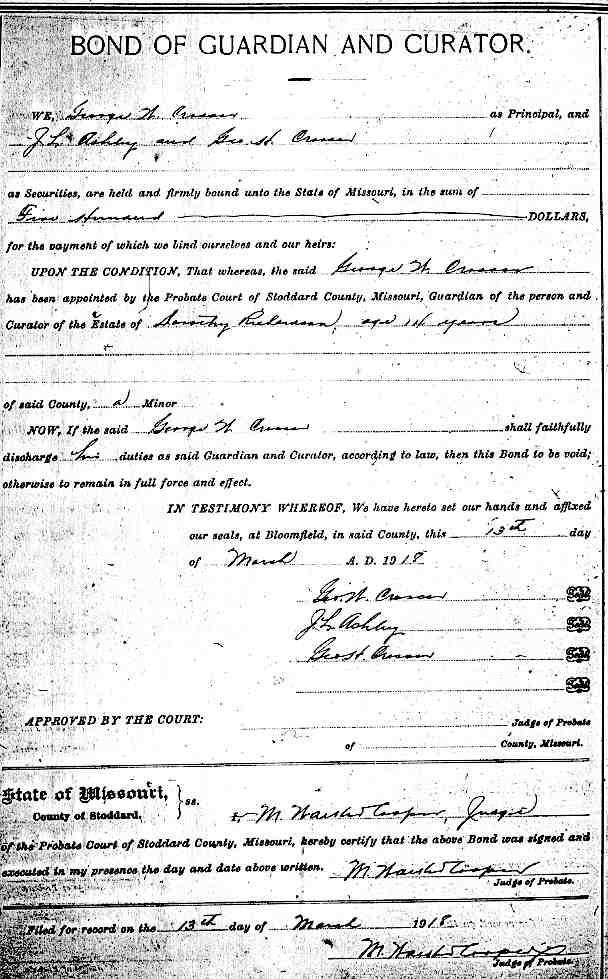 BOND OF GUARDIAN AND CURATOR.
WE, George W. as Principal, and
J L Ashby and Geo. H.
as Securities, are held and firmly bound unto the State of Missouri, in the sum of
Five Hundred DOLLARS,
for the payment of which we bind ourselves and our heirs:
UPON THE CONDITION, That whereas, the said George W.
has been appointed by the Probate Court of Stoddard County, Missouri, Guardian of the person and
Curator of the Estate of Dorothy Richardson, age 14 years
of said County, a Minor
NOW, If the said George W. shall faithfully
discharge his duties as said Guardian and Curator, according to law, then this Bond to be void;
otherwise to remain in full force and effect.
IN TESTIMONY WHEREOF, We have hereto set our hands and affixed
our seals, at Bloomfield, in said County, this 13th day
of March A. D. 1918
Geo. W. Seal
J L Ashby Seal
Geo H. Seal
Seal
APPROVED BY THE COURT: Judge of Probate
of County, Missouri.
State of Missouri,
County of Stoddard, } ss.
I, M. Cooper, Judge
of the Probate Court of Stoddard County, Missouri, hereby certify that the above Bond was signed and
executed in my presence the day and date above written. M. Cooper
Judge of Probate.
Filed for record on the 13th day of March 1918
M. Cooper
Judge of Probate